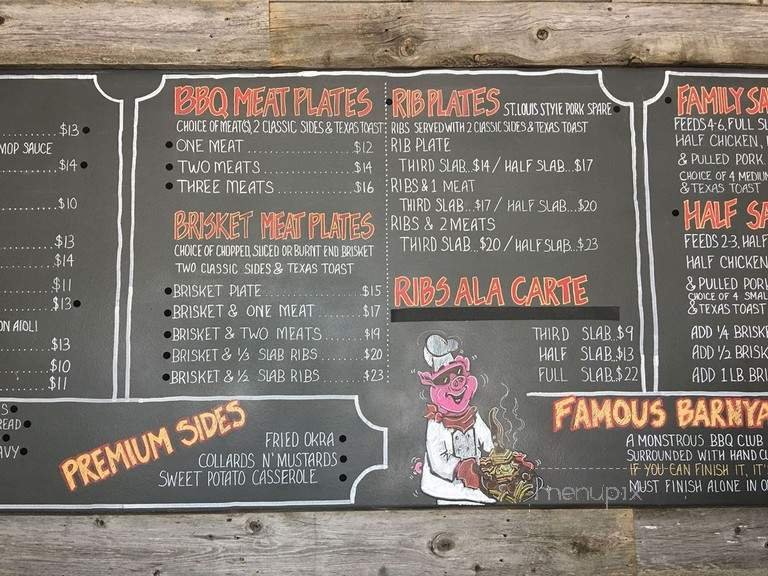 $13
MOP SAUCE
$14
$10
$13
$14
$11
$13
ON AIOLI
$13
$10
$11
BBQ MEAT PLATES
CHOICE OF MEAT(S), 2 CLASSIC SIDES & TEXAS TOAST
ONE MEAT $12
TWO MEATS $14
THREE MEATS $16
BRISKET MEAT PLATES
CHOICE OF CHOPPED, SLICED OR BURNT END BRISKET
TWO CLASSIC SIDES & TEXAS TOAST
BRISKET PLATE $15
BRISKET & ONE MEAT $17
BRISKET & TWO MEATS $19
BRISKET & ⅓ SLAB RIBS $20
BRISKET & ½ SLAB RIBS $23
RIB PLATES ST. LOUIS STYLE PORK SPARE
RIBS SERVED WITH 2 CLASSIC SIDES & TEXAS TOAST
RIB PLATE
THIRD SLAB..$14 / HALF SLAB...$17
RIBS & 1 MEAT
THIRD SLAB...$17 / HALF SLAB...$20
RIBS & 2 MEATS
THIRD SLAB..$20 / HALF SLAB..$23
RIBS ALA CARTE
THIRD SLAB.$9
HALF SLAB.$13
FULL SLAB.$22
FAMILY SA
FEEDS 4-6, FULL SL
HALF CHICKEN,
& PULLED PORK
CHOICE OF 4 MEDIUM
& TEXAS TOAST
HALF SA
FEEDS 2-3, HALF
HALF CHICKEN
& PULLED PORK
CHOICE OF 4 SMAL
& TEXAS TOAST
ADD ¼ BRISKE
ADD ½ BRISK
ADD 1 LB. BRI
S
READ
AVY
PREMIUM SIDES
FRIED OKRA
COLLARDS N' MUSTARDS
SWEET POTATO CASSEROLE
FAMOUS BARNYA
A MONSTROUS BBQ CLUB
SURROUNDED WITH HAND CU
IF YOU CAN FINISH IT, IT'S
MUST FINISH ALONE IN O
menupix